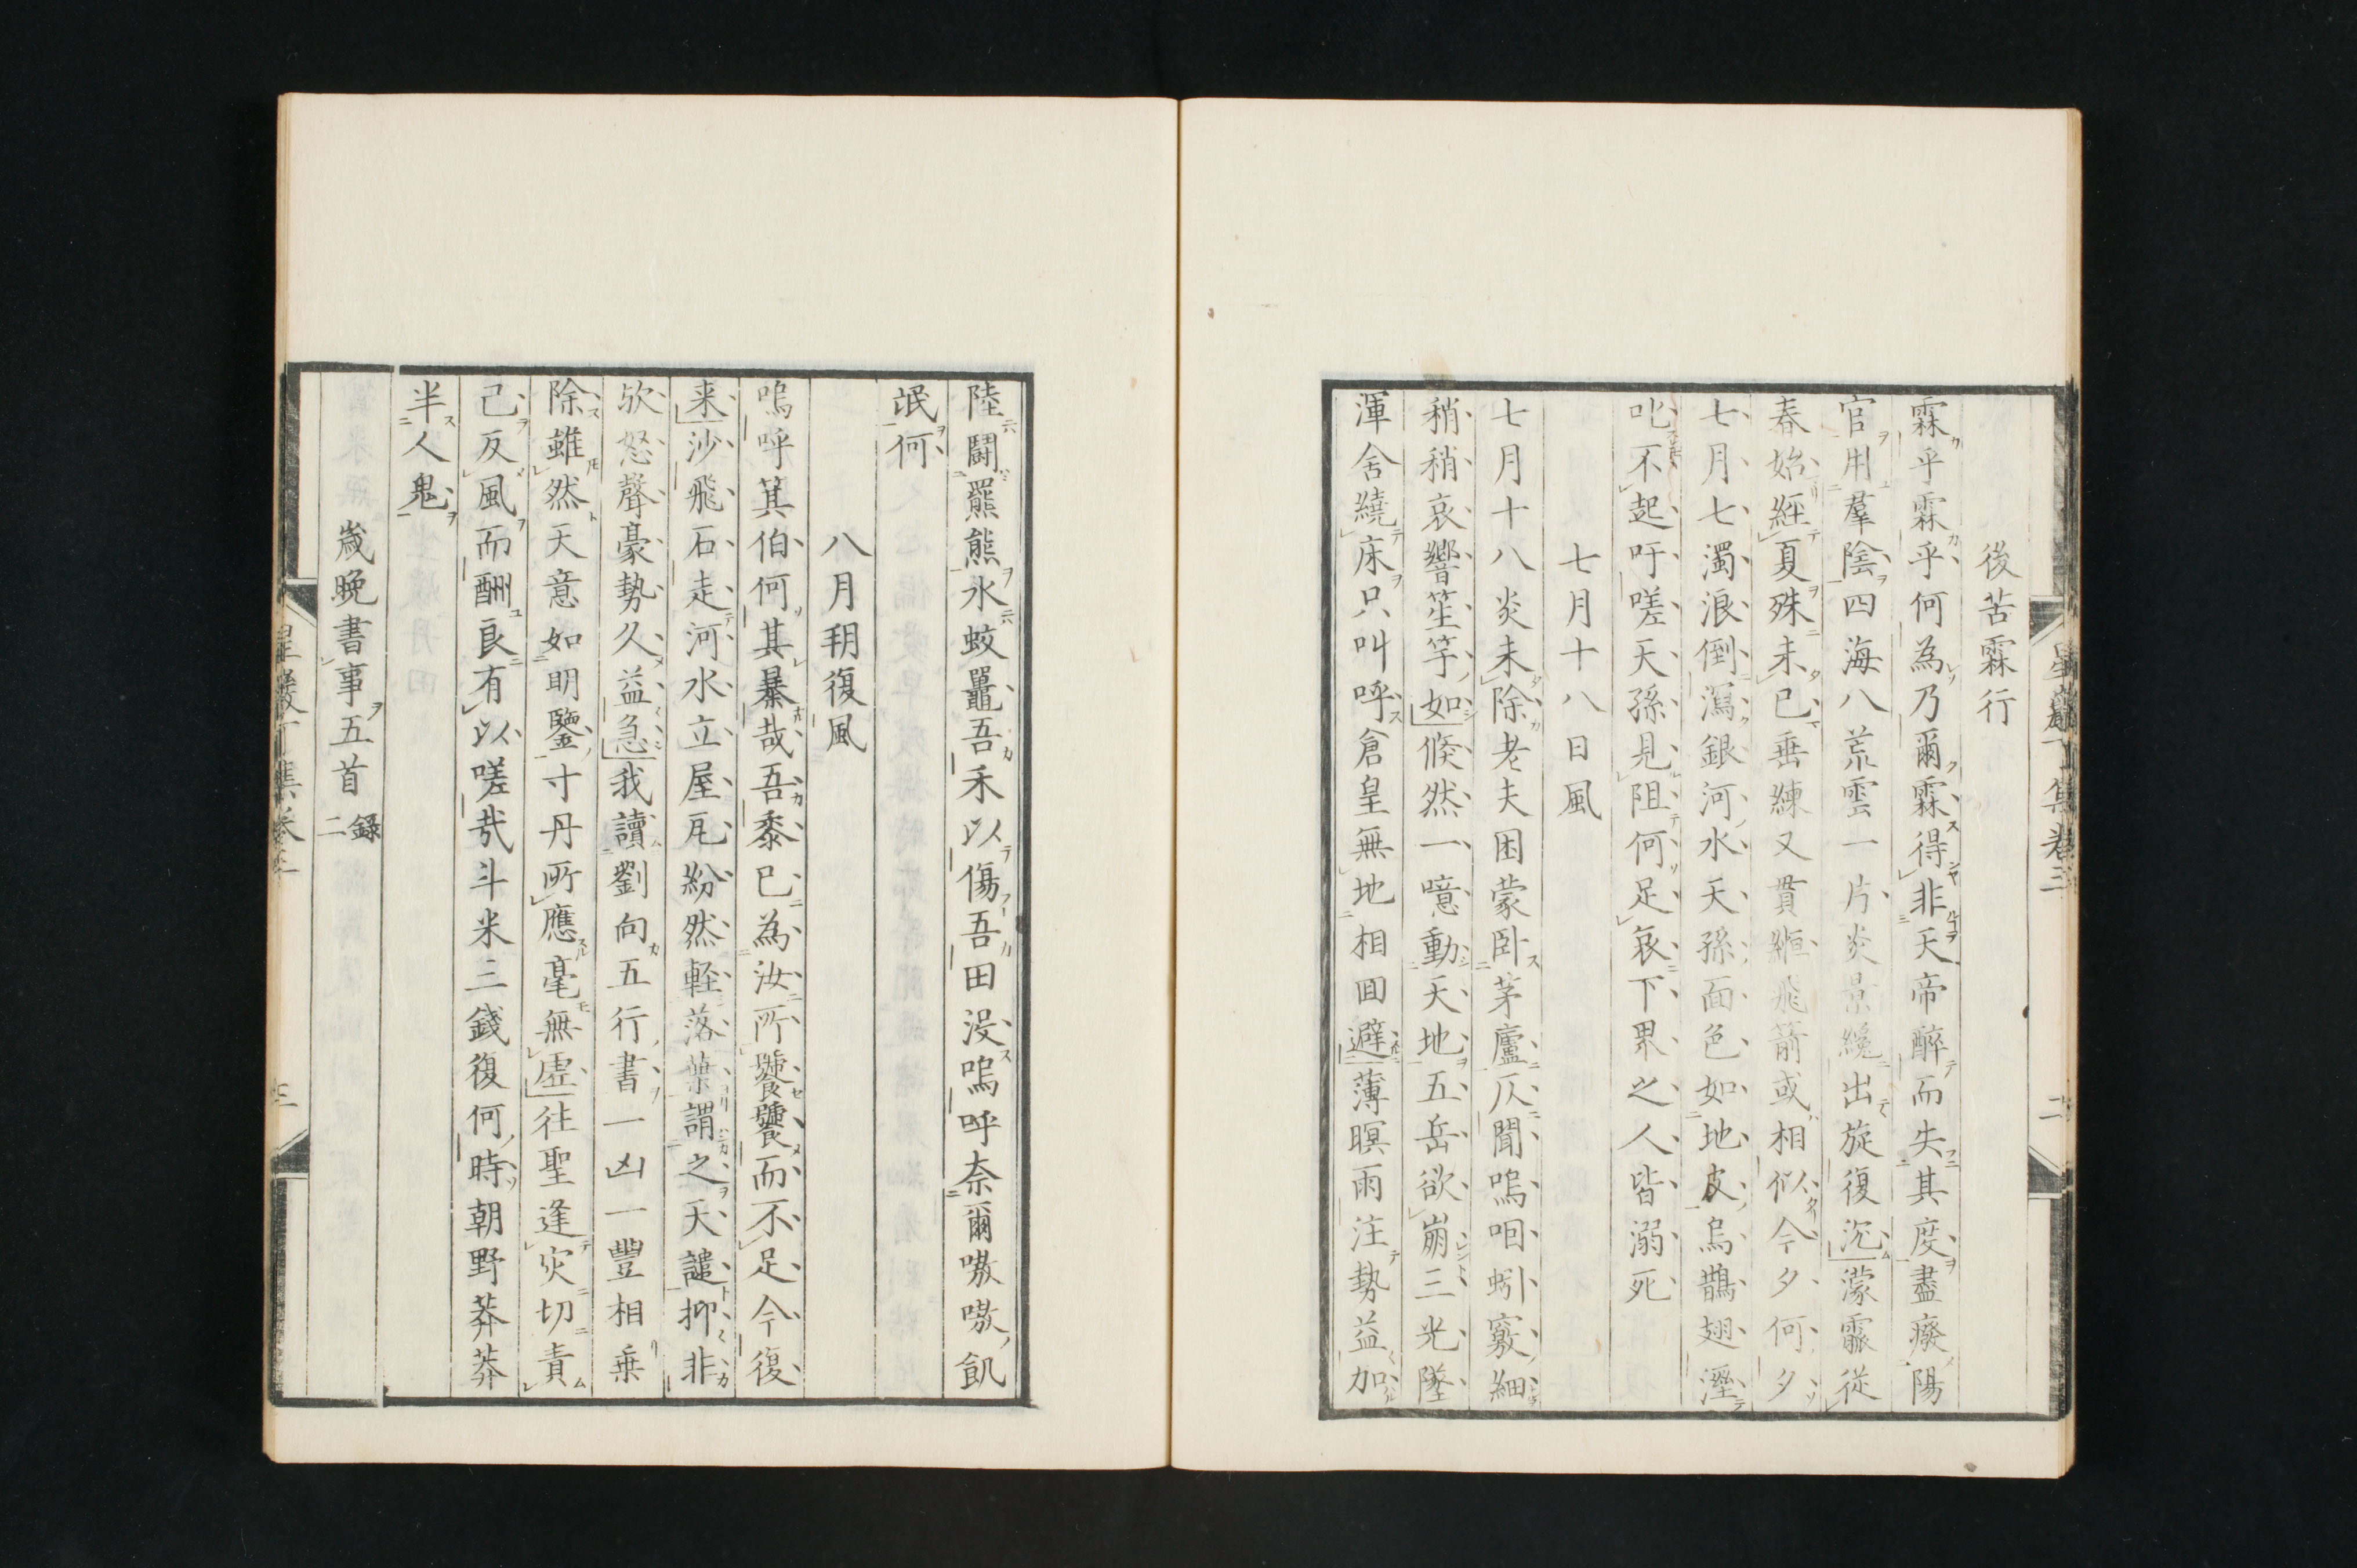 後苦霖行
霖乎霖乎何為乃爾霖得非天帝醉而失其度盡癈陽
官用羣陰四海八荒雲一片炎景纔出旋復沉濛霢従
春始經夏殊未已垂練又貫縆飛箭或相似今夕何夕
七月七濁浪倒瀉銀河水天孫面色如地皮烏鵲翅溼
叱不起吁嗟天孫見阻何足哀下界之人皆溺死
七月十八日風
七月十八炎未除老夫困蒙卧茅廬仄聞嗚咽蚓竅細
稍稍哀響笙竽如倏然一噫動天地五岳欲崩三光墜
渾舍繞床只叫呼倉皇無地相囬避薄暝雨注勢益加
陸鬪羆熊水蛟鼉吾禾以傷吾田没嗚呼奈爾嗷嗷飢
氓何
八月朔復風
嗚呼箕伯何其暴哉吾黍已為汝所饕饕而不足今復
来沙飛石走河水立屋瓦紛然軽落葉謂之天譴抑非
欤怒聲豪勢久益急我讀劉向五行書一凶一豐相乗
除雖然天意如明鑒寸丹所應毫無虚往聖逢灾切責
己反風而酬良有以嗟哉斗米三錢復何時朝野莽莽
半人鬼
歳晩書事五首 録二